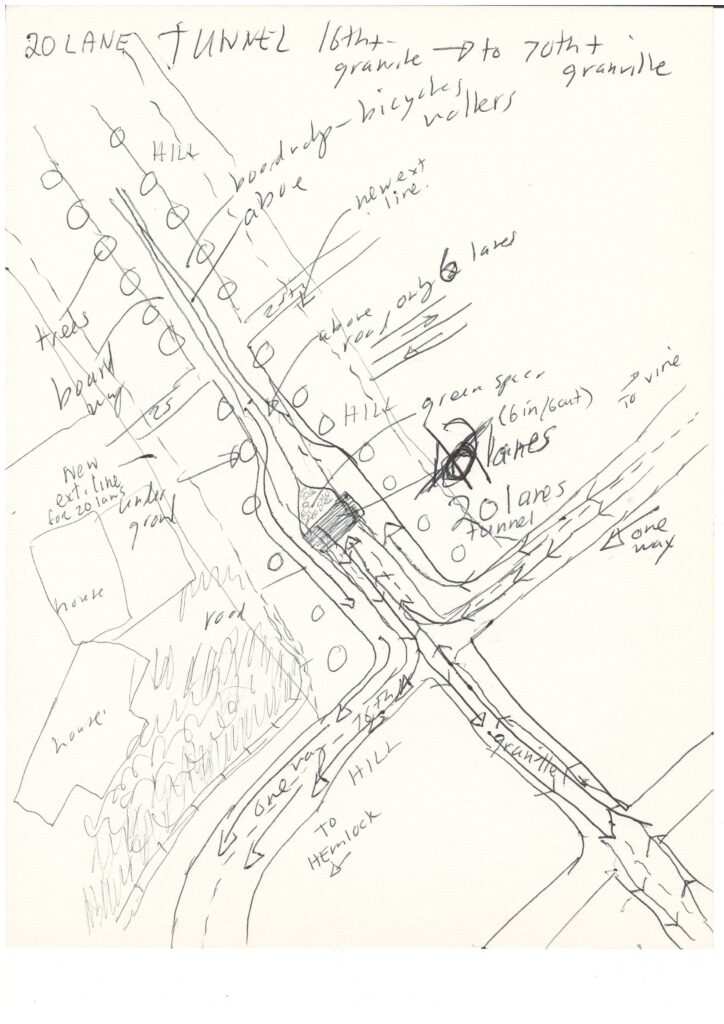 20 LANE TUNNEL 16th +
granville → to 70th +
granville
HILL
boardway - bicycles
walkers
above
new ext
line.
25ft
above
road only 6 lanes
trees
board
way
25
HILL
green space
(6 in/6 out)
→ vine
TO
lanes
20 lanes
tunnel
one
way
New
ext. line
for 20 lane
under
ground
house
road
house
16th
one way
HILL
granville
TO
HEMLOCK